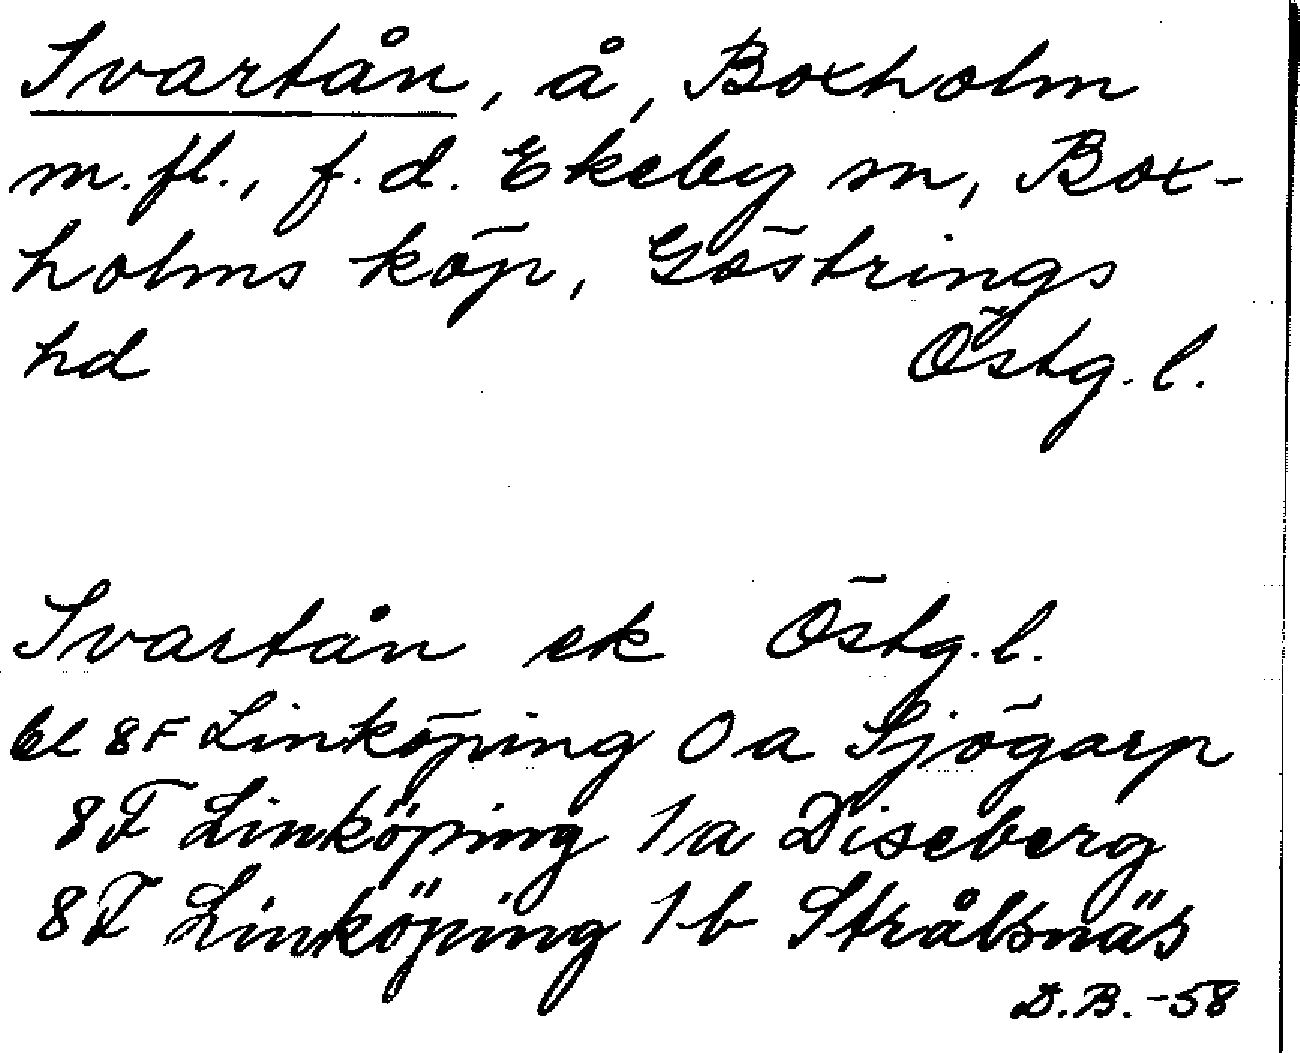 Svartån, å, Boxholm
m.fl., f.d. Ekeby sn, Box-
holms köp, Göstrings
hd Östg. l.
Svartån ek Östg. l.
bl 8F Linköping 0a Sjögarp
8F Linköping 1a Diseberg
8F Linköping 1b Strålsnäs
D.B. -58